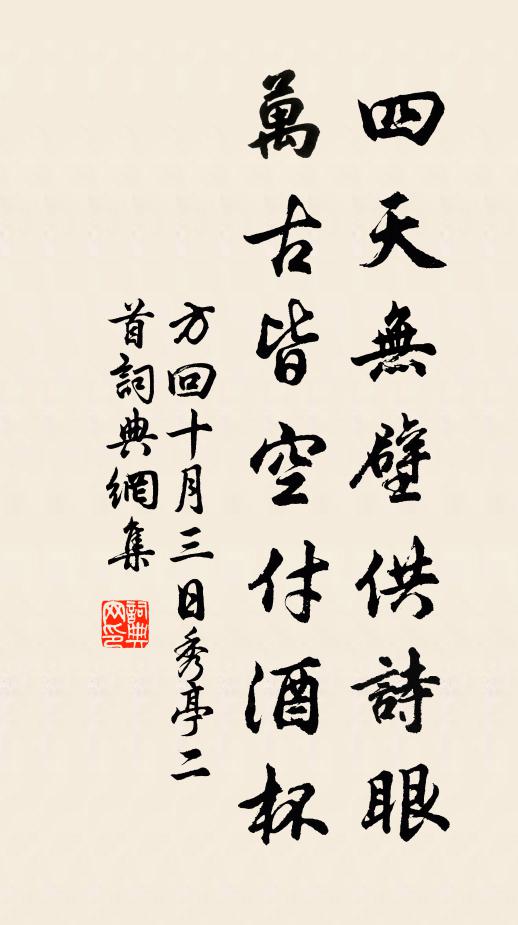 四天無壁供詩眼
萬古皆空付酒杯
方回十月三日秀亭二
首詞典網集
詞典网印